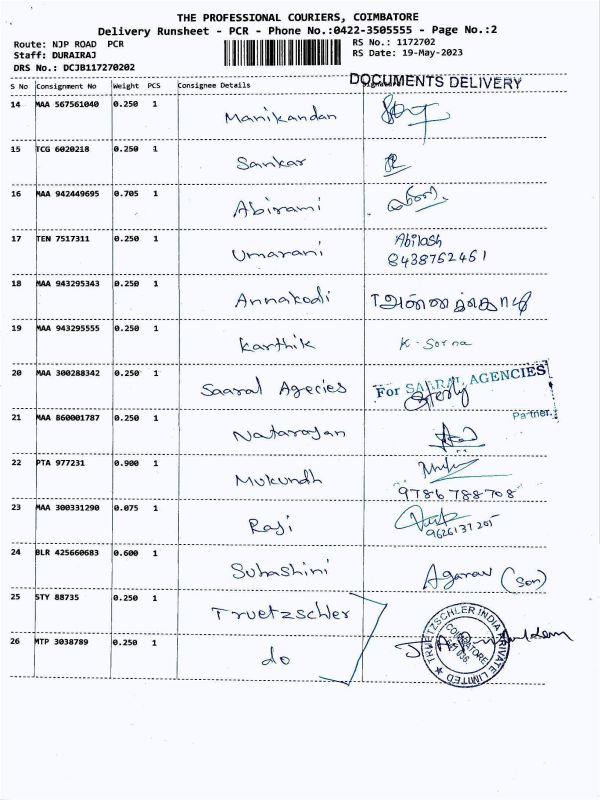 THE PROFESSIONAL COURIERS, COIMBATORE
Delivery Runsheet - PCR - Phone No.:0422-3505555 - Page No.:2
Route: NJP ROAD PCR
RS No.: 1172702
Staff: DURAIRAJ
RS Date: 19-May-2023
DRS No.: DCJB117270202
DOCUMENTS DELIVERY
S No Consignment No Weight PCS Consignee Details
14 MAA 567561040 0.250 1 Manikandan
15 TCG 6020218 0.250 1 Sankar
16 MAA 942449695 0.705 1 Abirami
17 TEN 7517311 0.250 1 Umarani Abilash
8438762461
18 MAA 943295343 0.250 1 Annakodi
19 MAA 943295555 0.250 1 Karthik K. Sorna
20 MAA 300288342 0.250 1 Saaral Agecies For SAARAL AGENCIES
Partner.
21 MAA 860001787 0.250 1 Natarajan
22 PTA 977231 0.900 1 Mukundh
9786788708
23 MAA 300331290 0.075 1 Raji
9626137205
24 BLR 425660683 0.600 1 Suhashini Agarav (Son)
25 STY 88735 0.250 1 Truetzschler
26 MTP 3038789 0.250 1 do
TRUETZSCHLER INDIA PRIVATE LIMITED
COIMBATORE